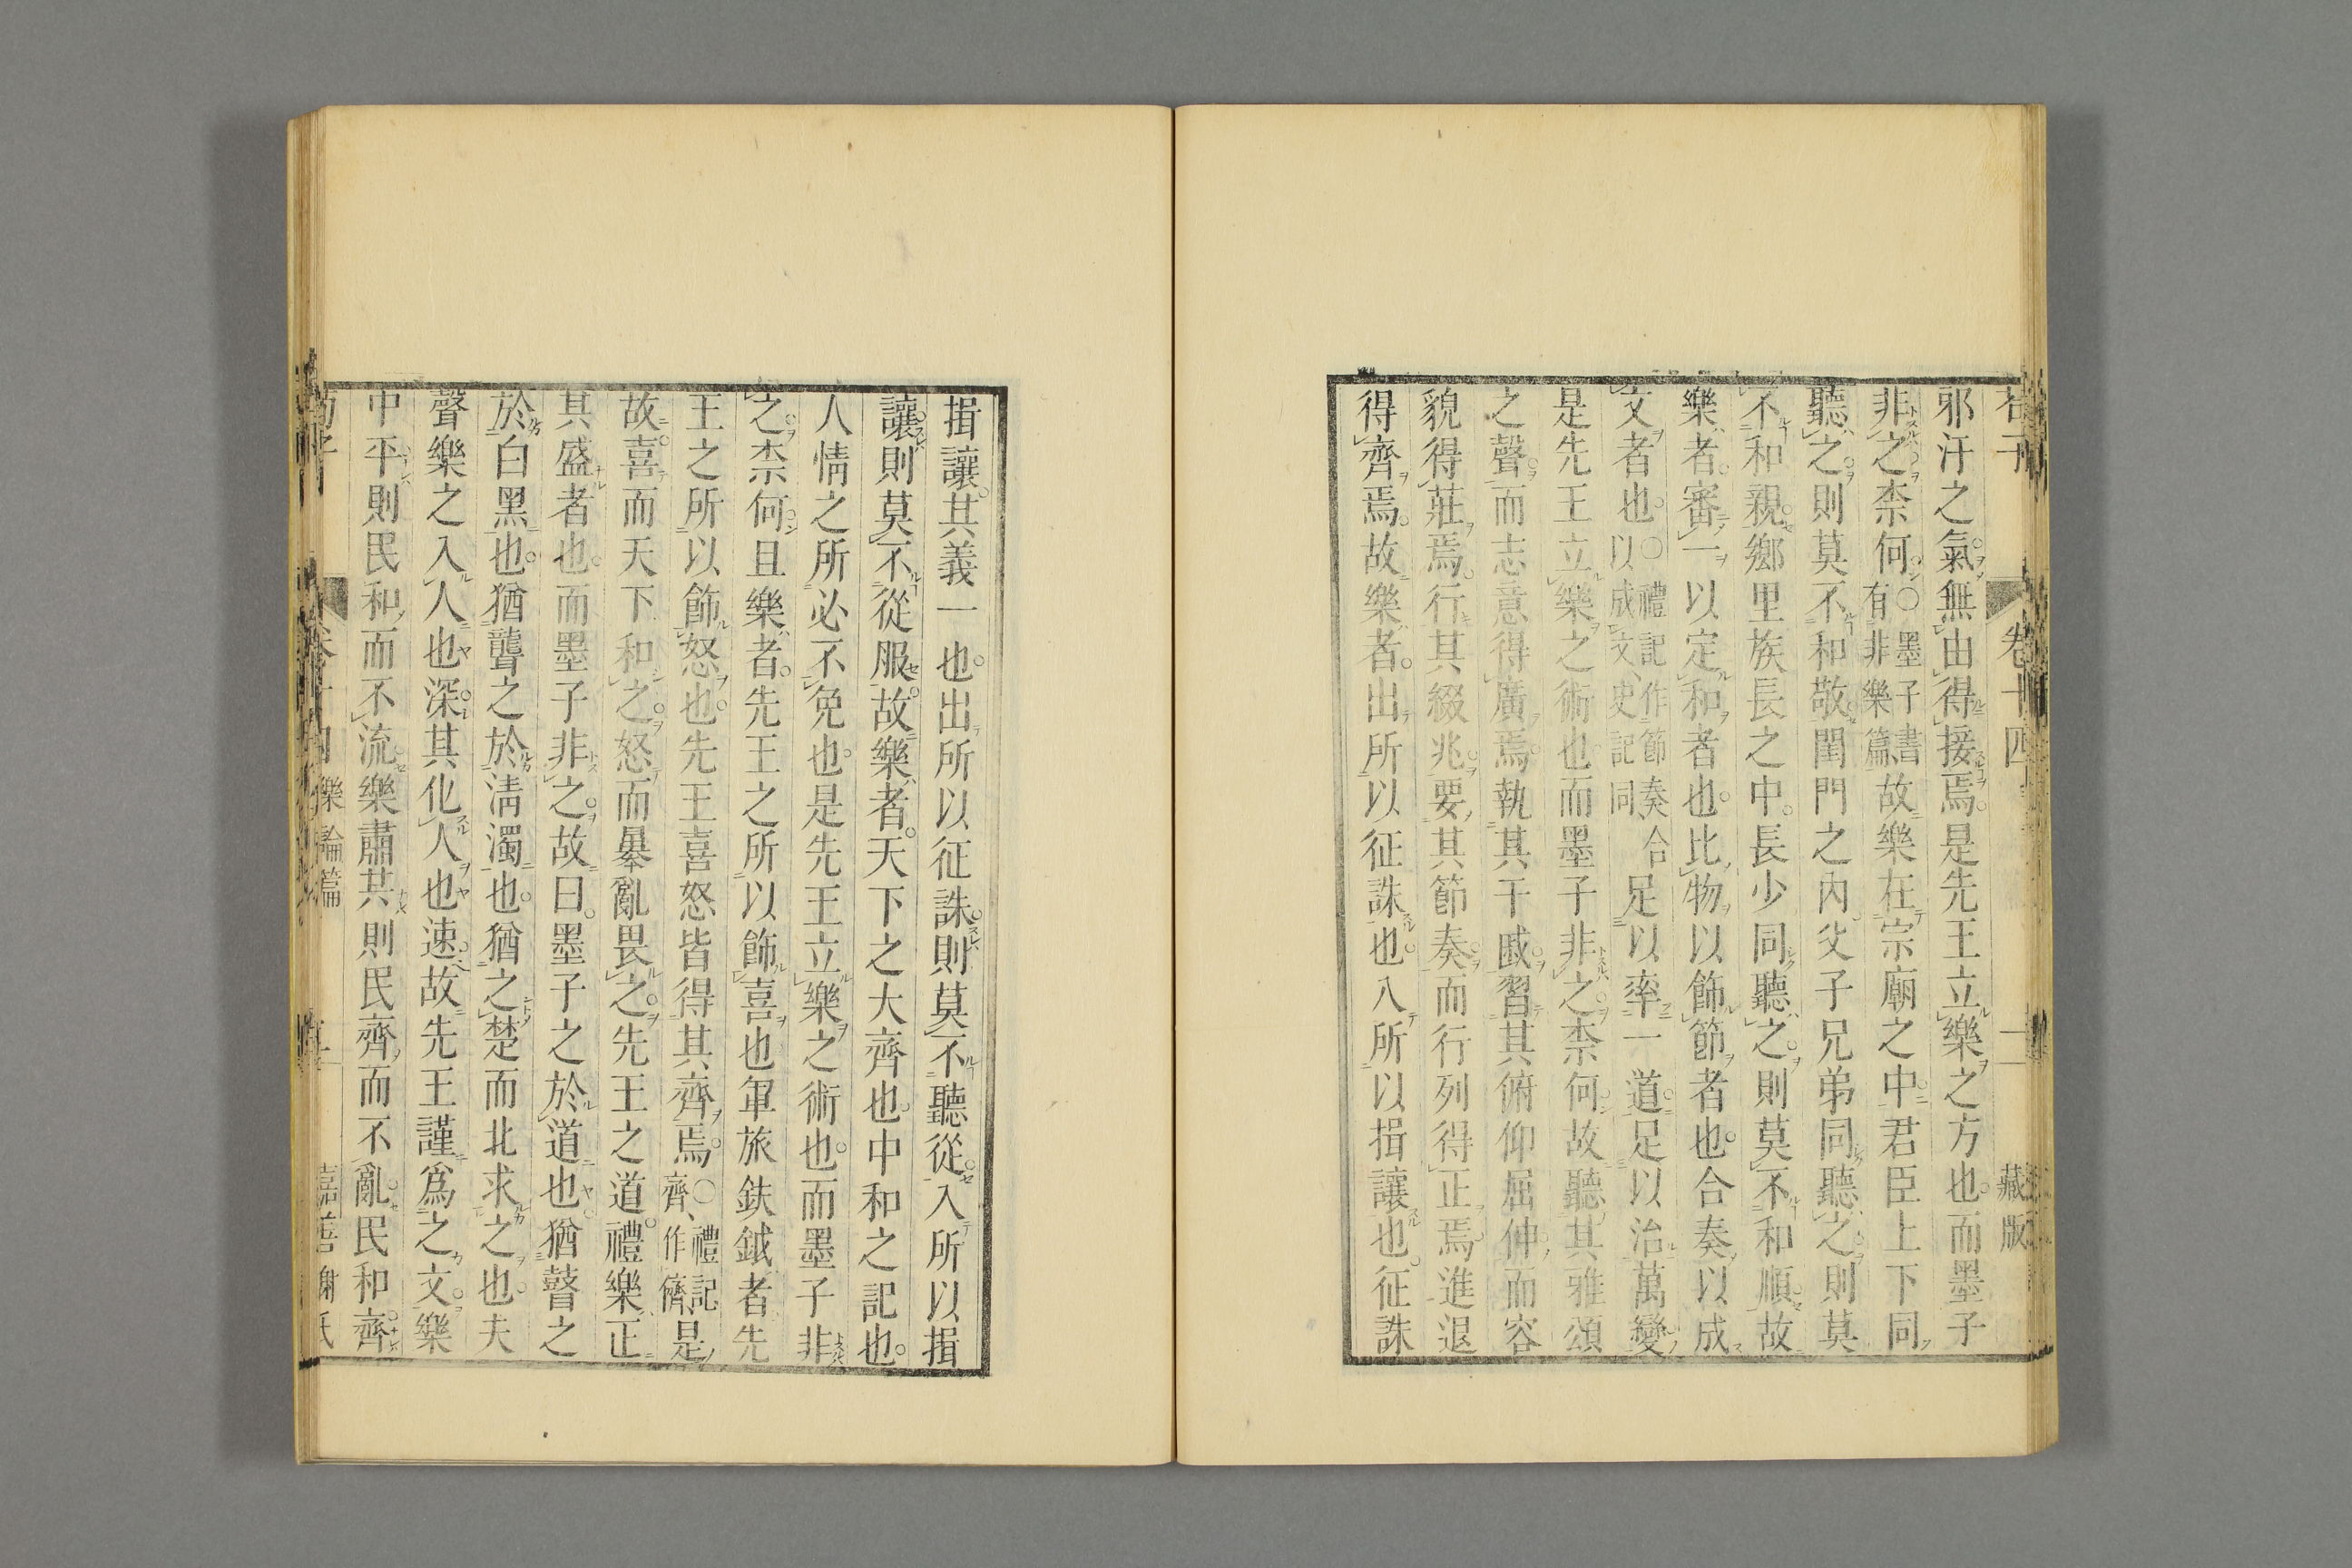 邪汙之氣無由得接焉是先王立樂之方也而墨子
非之柰何○墨子書有非樂篇故樂在宗廟之中君臣上下同
聽之則莫不和敬閨門之內父子兄弟同聽之則莫
不和親鄉里族長之中長少同聽之則莫不和順故
樂者審一以定和者也比物以飾節者也合奏以成
文者也○禮記作節奏合以成文史記同足以率一道足以治萬變
是先王立樂之術也而墨子非之柰何故聽其雅頌
之聲而志意得廣焉執其干戚習其俯仰屈伸而容
貌得莊焉行其綴兆要其節奏而行列得正焉進退
得齊焉故樂者出所以征誅也入所以揖讓也征誅
卷十四
二
藏版
揖讓其義一也出所以征誅則莫不聽從入所以揖
讓則莫不從服故樂者天下之大齊也中和之記也
人情之所必不免也是先王立樂之術也而墨子非
之柰何且樂者先王之所以飾喜也軍旅鈇鉞者先
王之所以飾怒也先王喜怒皆得其齊焉○禮記齊作儕是
故喜而天下和之怒而暴亂畏之先王之道禮樂正
其盛者也而墨子非之故曰墨子之於道也猶瞽之
於白黑也猶聾之於淸濁也猶之楚而北求之也夫
聲樂之入人也深其化人也速故先王謹爲之文樂
中平則民和而不流樂肅其則民齊而不亂民和齊
樂論篇
嘉善謝氏